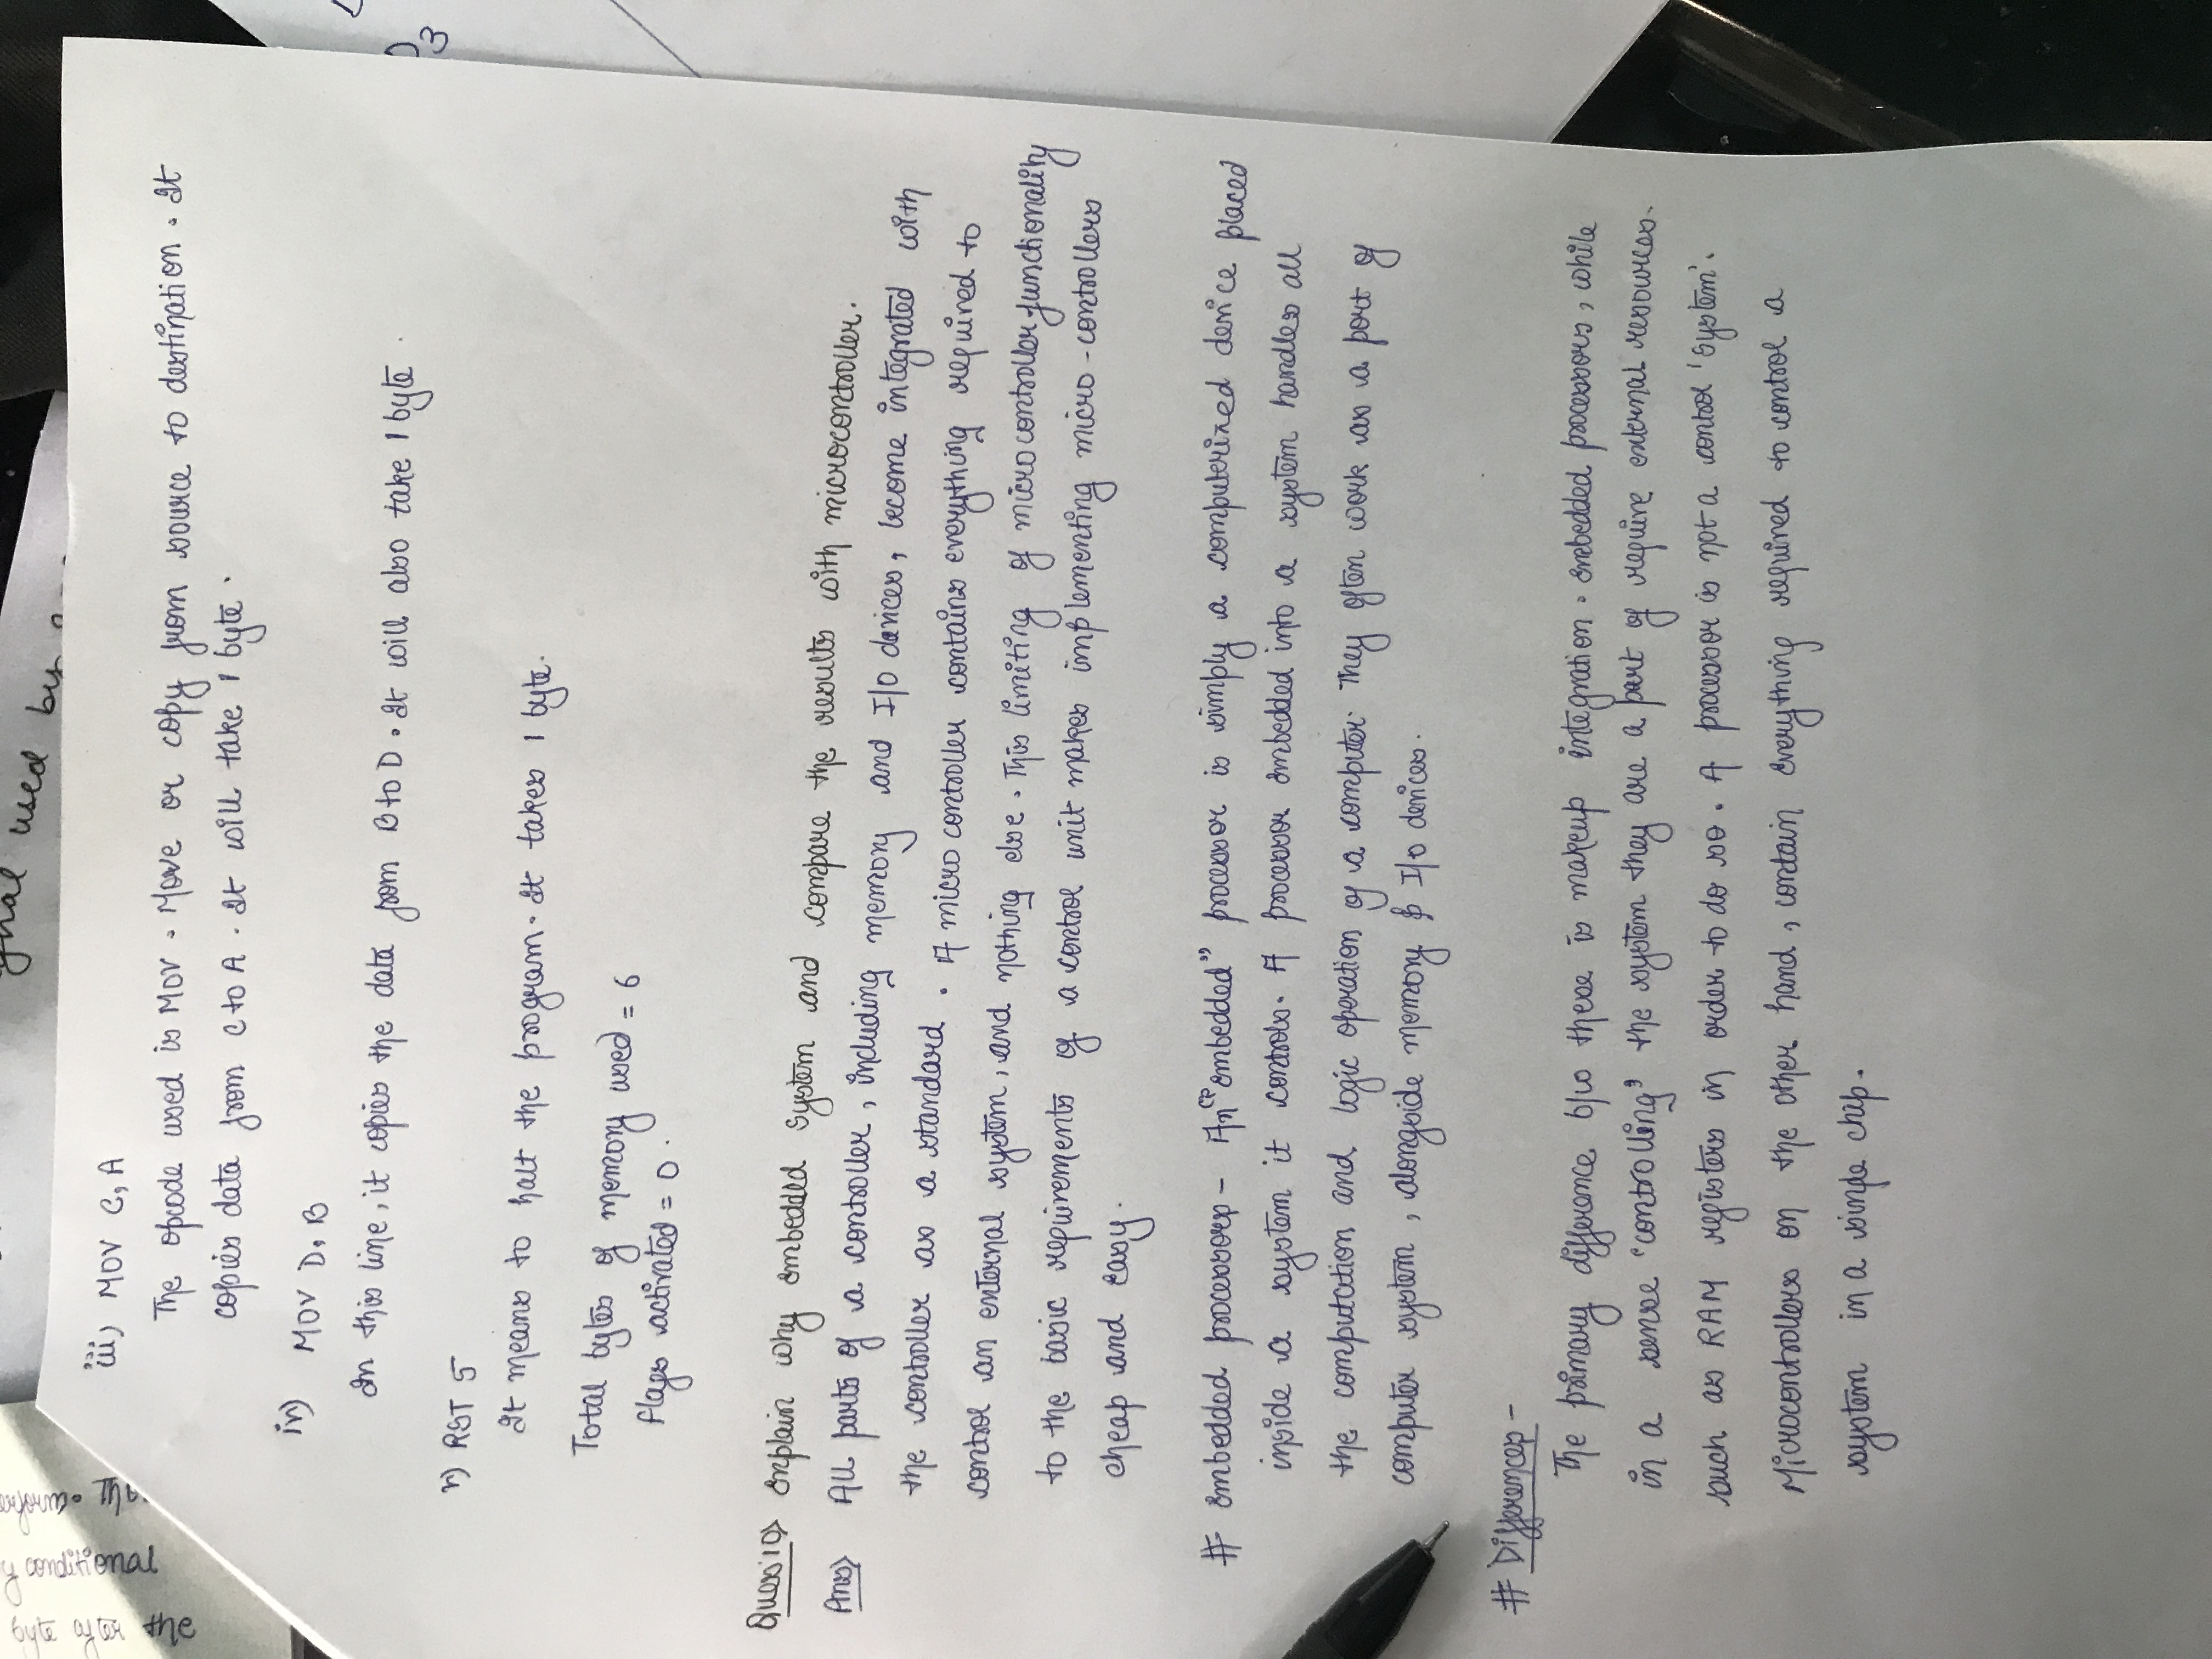 gnal used by
byte after the
y conditional
iii) MOV C, A
The opcode used is MOV. Move or copy from source to destination. It
copies data from C to A. It will take 1 byte.
iv) MOV D, B
In this line, it copies the data from B to D. It will also take 1 byte.
v) RST 5
It means to halt the program. It takes 1 byte.
Total bytes of memory used = 6
flags activated = 0.
Ques:10> Explain why embedded system and compare the results with microcontroller.
Ans> All parts of a controller, including memory and I/O devices, become integrated with
the controller as a standard. A micro controller contains everything required to
control an external system, and nothing else. This limiting of micro controller functionality
to the basic requirements of a control unit makes implementing micro-controllers
cheap and easy.
# Embedded processors - An "embedded" processor is simply a computerized device placed
inside a system it controls. A processor embedded into a system handles all
the computation and logic operation of a computer. They often work as a part of
computer system, alongside memory & I/O devices.
# Differences -
The primary difference b/w these is makeup integration. Embedded processors, while
in a sense 'controlling' the system they are a part of require external resources.
such as RAM registers in order to do so. A processor is not a control 'system'.
Microcontrollers on the other hand, contain everything required to control a
system in a single chip.
D3